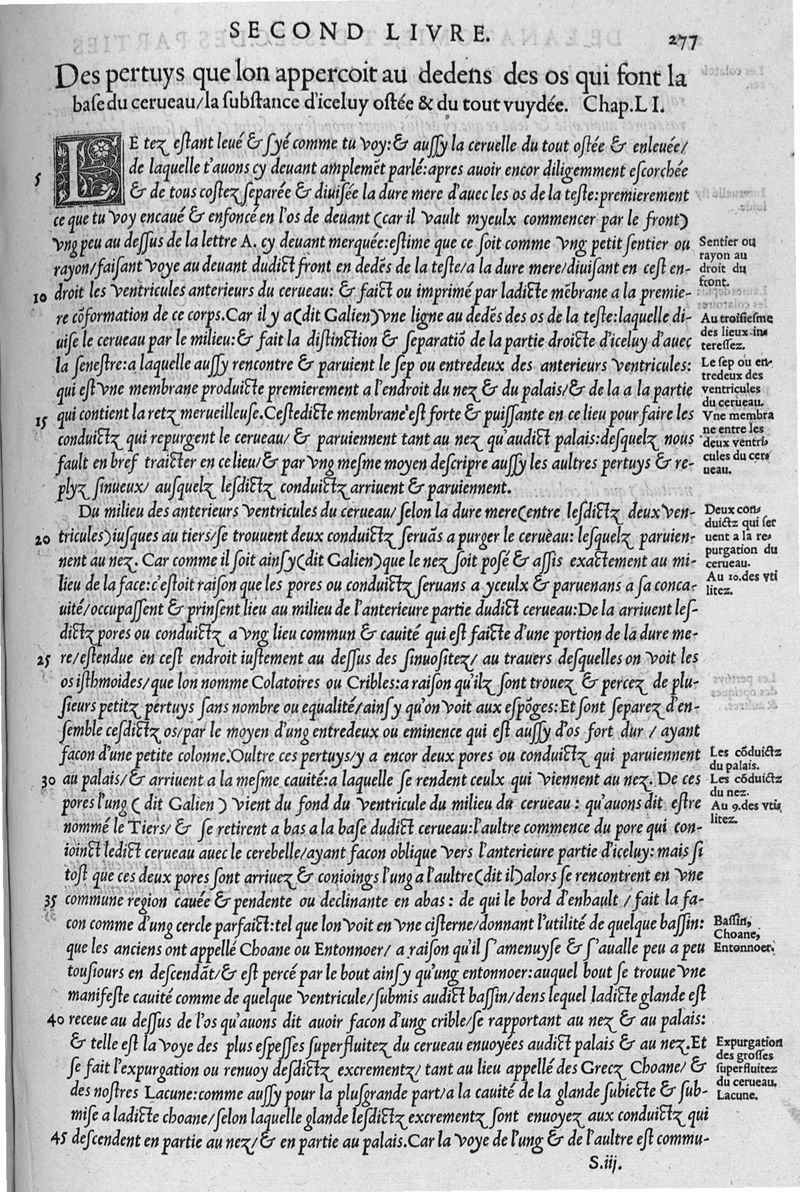 SECOND LIVRE.
277
Des pertuys que lon appercoit au dedens des os qui font la
base du cerueau/la substance d'iceluy ostée & du tout vuydée. Chap.LI.
LE tez estant leué & syé comme tu voy:& aussy la ceruelle du tout ostée & enleuée/
de laquelle t'auons cy deuant amplemẽt parlé:apres auoir encor diligemment escorchée
5
& de tous costez separée & diuisée la dure mere d'auec les os de la teste:premierement
ce que tu voy encaué & enfoncé en l'os de deuant (car il vault myeulx commencer par le front)
vng peu au dessus de la lettre A. cy deuant merquée:estime que ce soit comme vng petit sentier ou
rayon/faisant voye au deuant dudict front en dedẽs de la teste/a la dure mere/diuisant en cest en-
10 droit les ventricules anterieurs du cerueau: & faict ou imprimé par ladicte mẽbrane a la premie-
re cõformation de ce corps.Car il y a(dit Galien)vne ligne au dedẽs des os de la teste:laquelle di-
uise le cerueau par le milieu:& fait la distinction & separatiõ de la partie droicte d'iceluy d'auec
la senestre:a laquelle aussy rencontre & paruient le sep ou entredeux des anterieurs ventricules:
qui est vne membrane produicte premierement a l'endroit du nez & du palais/& de la a la partie
15 qui contient la retz merueilleuse.Cestedicte membrane est forte & puissante en ce lieu pour faire les
conduictz qui repurgent le cerueau/ & paruiennent tant au nez qu'audict palais:desquelz nous
fault en bref traicter en ce lieu/& par vng mesme moyen descripre aussy les aultres pertuys & re-
plyz sinueux/ ausquelz lesdictz conduictz arriuent & paruiennent.
Du milieu des anterieurs ventricules du cerueau/selon la dure mere(entre lesdictz deux ven-
20 tricules)iusques au tiers/se trouuent deux conduictz seruãs a purger le cerueau: lesquelz paruien-
nent au nez. Car comme il soit ainsy(dit Galien)que le nez soit posé & assis exactement au mi-
lieu de la face:c'estoit raison que les pores ou conduictz seruans a yceulx & paruenans a sa conca-
uité/occupassent & prinsent lieu au milieu de l'anterieure partie dudict cerueau:De la arriuent les-
dictz pores ou conduictz a vng lieu commun & cauité qui est faicte d'une portion de la dure me-
25 re/estendue en cest endroit iustement au dessus des sinuositez/ au trauers desquelles on voit les
os isthmoides/que lon nomme Colatoires ou Cribles:a raison qu'ilz sont trouez & percez de plu-
sieurs petitz pertuys sans nombre ou equalité/ainsy qu'on voit aux espõges:Et sont separez d'en-
semble cesdictz os/par le moyen d'ung entredeux ou eminence qui est aussy d'os fort dur / ayant
facon d'une petite colonne.Oultre ces pertuys/y a encor deux pores ou conduictz qui paruiennent
30 au palais/& arriuent a la mesme cauité:a laquelle se rendent ceulx qui viennent au nez. De ces
pores l'ung (dit Galien) vient du fond du ventricule du milieu du cerueau : qu'auons dit estre
nommé le Tiers/& se retirent a bas a la base dudict cerueau:l'aultre commence du pore qui con-
ioinct ledict cerueau auec le cerebelle/ayant facon oblique vers l'anterieure partie d'iceluy: mais si
tost que ces deux pores sont arriuez & conioings l'ung a l'aultre(dit il)alors se rencontrent en vne
35 commune region cauée & pendente ou declinante en abas: de qui le bord d'enhault / fait la fa-
con comme d'ung cercle parfaict:tel que lon voit en vne cisterne/donnant l'utilité de quelque bassin:
que les anciens ont appellé Choane ou Entonnoer/ a raison qu'il s'amenuyse & s'aualle peu a peu
tousiours en descendãt/& est percé par le bout ainsy qu'ung entonnoer:auquel bout se trouue vne
manifeste cauité comme de quelque ventricule/submis audict bassin/dens lequel ladicte glande est
40 receue au dessus de l'os qu'auons dit auoir facon d'ung crible/se rapportant au nez & au palais:
& telle est la voye des plus espesses superfluitez du cerueau enuoyées audict palais & au nez.Et
se fait l'expurgation ou renuoy desdictz excrementz/ tant au lieu appellé des Grecz Choane/ &
des nostres Lacune:comme aussy pour la plusgrande part/a la cauité de la glande subiecte & sub-
mise a ladicte choane/selon laquelle glande lesdictz excrementz sont enuoyez aux conduictz qui
45 descendent en partie au nez/& en partie au palais.Car la voye de l'ung & de l'aultre est commu-
S.iij.
Sentier ou
rayon au
droit du
front.
Au troisiesme
des lieux in
teressez.
Le sep ou en
tredeux des
ventricules
du cerueau.
Vne membra
ne entre les
deux ventri
cules du cer
ueau.
Deux con
duictz qui ser
uent a la re
purgation du
cerueau.
Au 10.des vti
litez.
Les cõduictz
du palais.
Les cõduictz
du nez.
Au 9.des vti
litez.
Bassin,
Choane,
Entonnoer.
Expurgation
des grosses
superfluitez
du cerueau.
Lacune.